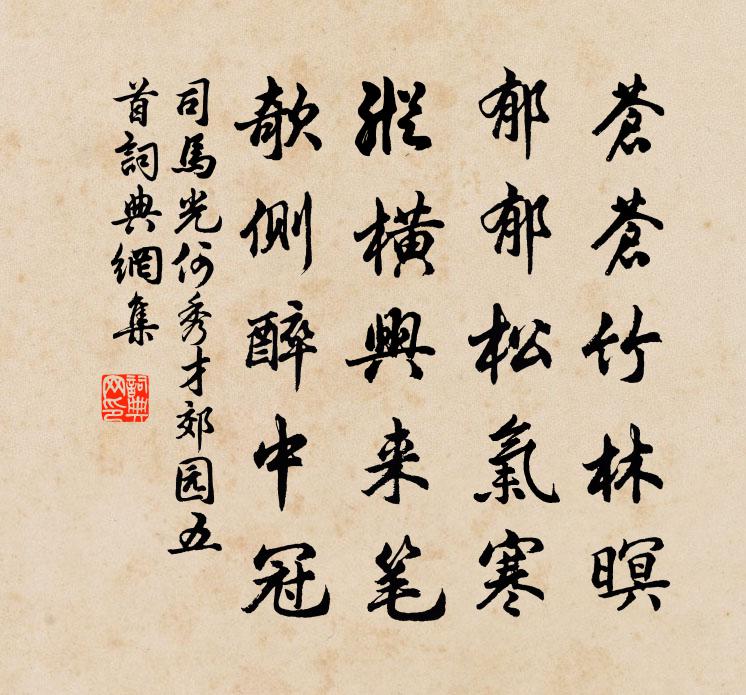 蒼蒼竹林暝
郁郁松氣寒
縱橫興来笔
欹側醉中冠
司馬光何秀才郊园五
首詞典網集
詞典
网印